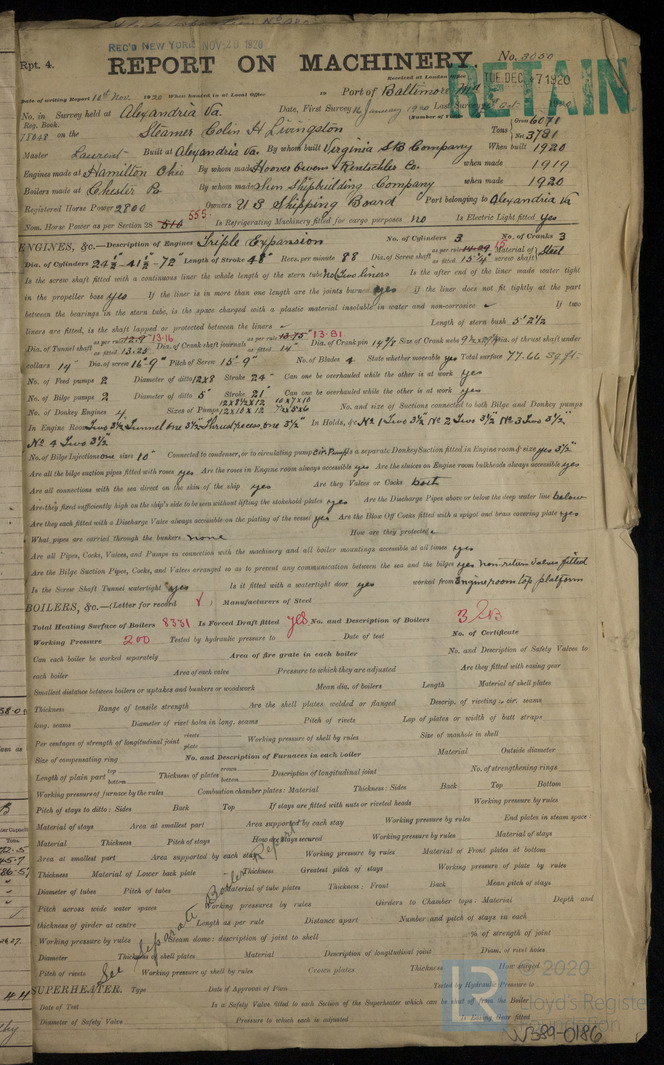 REC'D NEW YORK NOV 20 1920
Rpt. 4.
REPORT ON MACHINERY.
No. 3050
Received at London Office
TUE. DEC. 7 1920
RETAIN
Date of writing Report 11th Nov 1920 When handed in at Local Office Port of Baltimore Md
No. in Survey held at Alexandria Va. Date, First Survey 16 January 1920 Last Survey
Reg. Book.
78648 on the Steamer Colin H Livingston Tons Gross 6071 Net 3731
Master Laurent Built at Alexandria Va. By whom built Virginia SB Company When built 1920
Engines made at Hamilton Ohio By whom made Hoover Owens & Rentschler Co. when made 1919
Boilers made at Chester Pa By whom made Sun Shipbuilding Company when made 1920
Registered Horse Power 2800 Owners U S Shipping Board Port belonging to Alexandria Va
Nom. Horse Power as per Section 28 510 555 Is Refrigerating Machinery fitted for cargo purposes no Is Electric Light fitted yes
ENGINES, &c.—Description of Engines Triple Expansion No. of Cylinders 3 No. of Cranks 3
Dia. of Cylinders 24½-41½-72 Length of Stroke 48" Revs. per minute 88 Dia. of Screw shaft as per rule 14.29 15 as fitted 15¼" Material of screw shaft Steel
Is the screw shaft fitted with a continuous liner the whole length of the stern tube No (Two liners Is the after end of the liner made water tight
in the propeller boss yes If the liner is in more than one length are the joints burned yes If the liner does not fit tightly at the part
between the bearings in the stern tube, is the space charged with a plastic material insoluble in water and non-corrosive ✓ If two
liners are fitted, is the shaft lapped or protected between the liners ✓ Length of stern bush 5' 2½
Dia. of Tunnel shaft as per rule 12.9 13.16 as fitted 13.25 Dia. of Crank shaft journals as per rule 13.75 13.81 as fitted 14" Dia. of Crank pin 14⅞ Size of Crank webs Dia. of thrust shaft under
collars 14" Dia. of screw 16'-9" Pitch of Screw 15' 9" No. of Blades 4 State whether moveable yes Total surface 77.66 sq ft.
No. of Feed pumps 2 Diameter of ditto 12x8 Stroke 24" Can one be overhauled while the other is at work yes
No. of Bilge pumps 2 Diameter of ditto 5" Stroke 21" Can one be overhauled while the other is at work yes
No. of Donkey Engines 4 Sizes of Pumps 12x8½x12 10x7x10 12x10x12 No. and size of Suctions connected to both Bilge and Donkey pumps
In Engine Room Two 3½ Tunnel one 3½ Thrust recess one 3½" In Holds, &c. No 1 Two 3½ No 2 Two 3½" No 3 Two 3½"
No 4 Two 3½
No. of Bilge Injections one sizes 10" Connected to condenser, or to circulating pump Cir Pump Is a separate Donkey Suction fitted in Engine room & size yes 3½"
Are all the bilge suction pipes fitted with roses yes Are the roses in Engine room always accessible yes Are the sluices on Engine room bulkheads always accessible yes
Are all connections with the sea direct on the skin of the ship yes Are they Valves or Cocks both
Are they fixed sufficiently high on the ship's side to be seen without lifting the stokehold plates yes Are the Discharge Pipes above or below the deep water line below
Are they each fitted with a Discharge Valve always accessible on the plating of the vessel yes Are the Blow Off Cocks fitted with a spigot and brass covering plate yes
What pipes are carried through the bunkers none How are they protected
Are all Pipes, Cocks, Valves, and Pumps in connection with the machinery and all boiler mountings accessible at all times yes
Are the Bilge Suction Pipes, Cocks, and Valves arranged so as to prevent any communication between the sea and the bilges yes non-return valves fitted
Is the Screw Shaft Tunnel watertight yes Is it fitted with a watertight door yes worked from Engine room top platform
BOILERS, &c.—(Letter for record ✓ ) Manufacturers of Steel
Total Heating Surface of Boilers 8331 Is Forced Draft fitted yes No. and Description of Boilers 3 SB
Working Pressure 200 Tested by hydraulic pressure to Date of test No. of Certificate
Can each boiler be worked separately Area of fire grate in each boiler No. and Description of Safety Valves to
each boiler Area of each valve Pressure to which they are adjusted Are they fitted with easing gear
Smallest distance between boilers or uptakes and bunkers or woodwork Mean dia. of boilers Length Material of shell plates
Thickness Range of tensile strength Are the shell plates welded or flanged Descrip. of riveting: cir. seams
long. seams Diameter of rivet holes in long. seams Pitch of rivets Lap of plates or width of butt straps
Per centages of strength of longitudinal joint rivets plate Working pressure of shell by rules Size of manhole in shell
Size of compensating ring No. and Description of Furnaces in each boiler Material Outside diameter
Length of plain part top bottom Thickness of plates crown bottom Description of longitudinal joint No. of strengthening rings
Working pressure of furnace by the rules Combustion chamber plates: Material Thickness: Sides Back Top Bottom
Pitch of stays to ditto: Sides Back Top If stays are fitted with nuts or riveted heads Working pressure by rules
Material of stays Area at smallest part Area supported by each stay Working pressure by rules End plates in steam space:
Material Thickness Pitch of stays How are stays secured Working pressure by rules Material of stays
Area at smallest part Area supported by each stay Working pressure by rules Material of Front plates at bottom
Thickness Material of Lower back plate Thickness Greatest pitch of stays Working pressure of plate by rules
Diameter of tubes Pitch of tubes Material of tube plates Thickness: Front Back Mean pitch of stays
Pitch across wide water spaces Working pressures by rules Girders to Chamber tops: Material Depth and
thickness of girder at centre Length as per rule Distance apart Number and pitch of stays in each
Working pressure by rules Steam dome: description of joint to shell % of strength of joint
Diameter Thickness of shell plates Material Description of longitudinal joint Diam. of rivet holes
Pitch of rivets Working pressure of shell by rules Crown plates Thickness How stayed
See Separate Boiler Report
SUPERHEATER. Type Date of Approval of Plan Tested by Hydraulic Pressure to
Date of Test Is a Safety Valve fitted to each Section of the Superheater which can be shut off from the Boiler
Diameter of Safety Valve Pressure to which each is adjusted Is Easing Gear fitted
© 2020
Lloyd's Register
Foundation
W389-0186